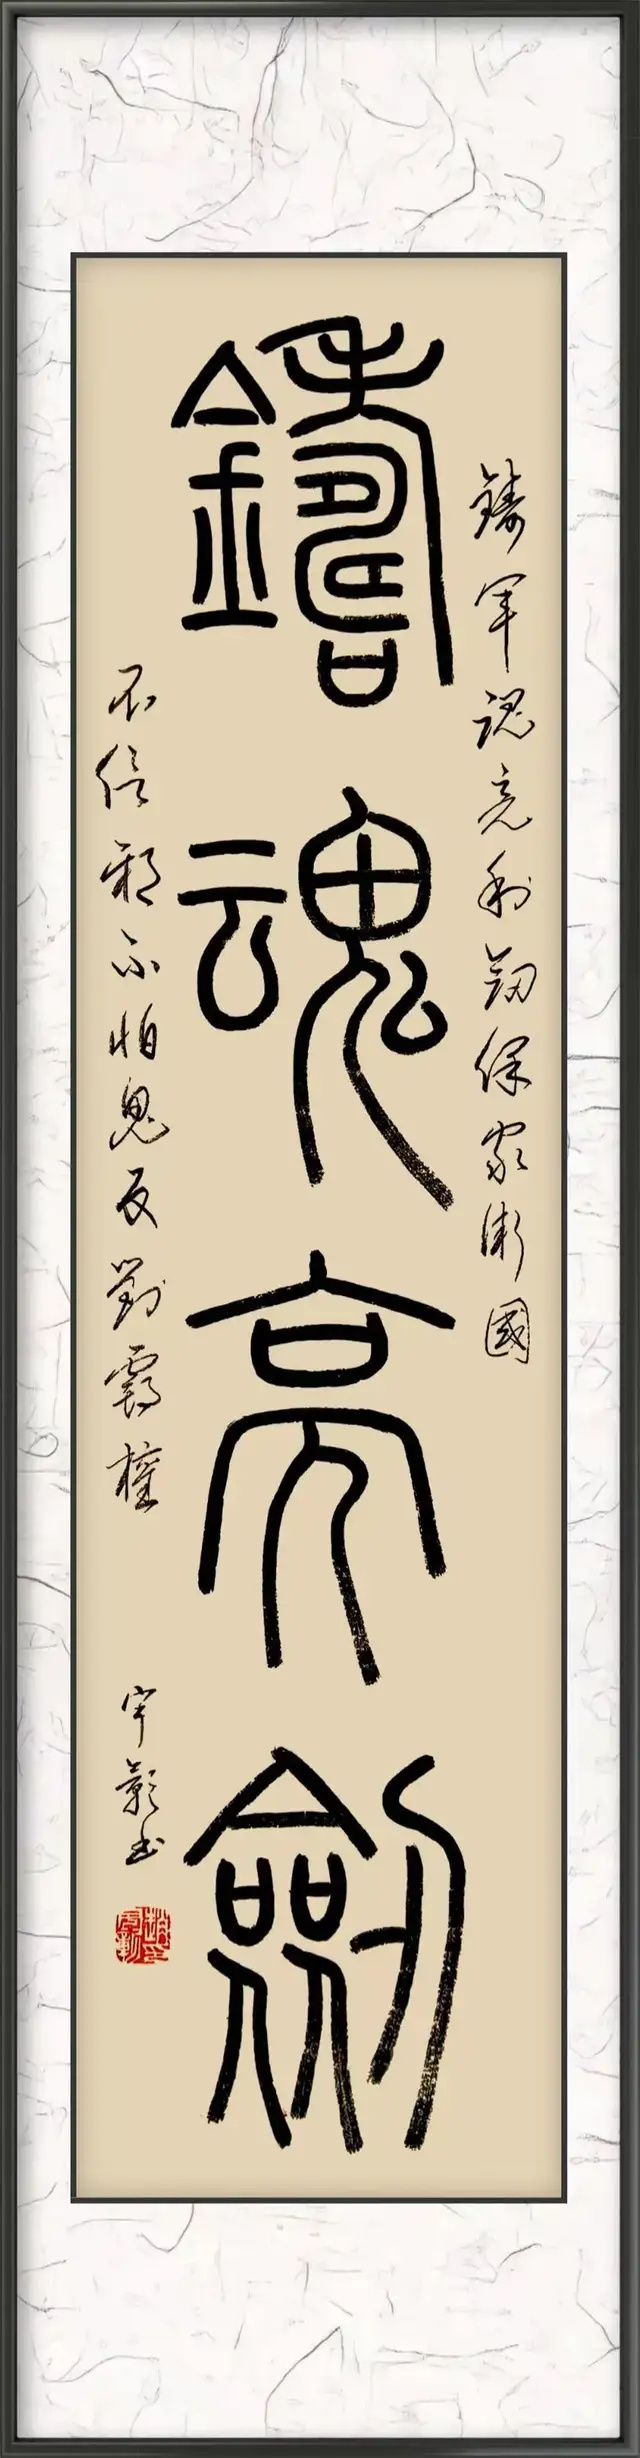 鑄軍魂亮利劍保家衛國
鑄魂亮劍
不信邪不怕鬼反對霸權
宇書